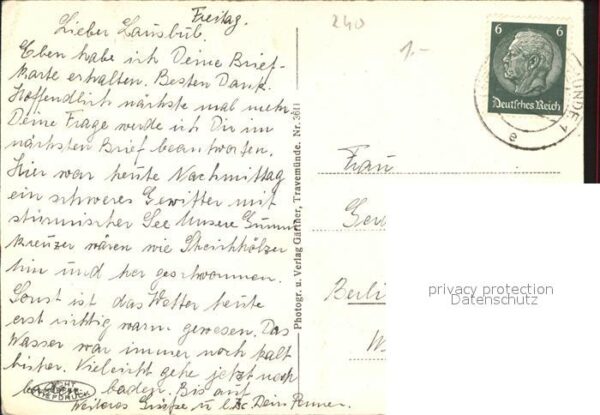 Freitag.
Lieber Lausbub.
Eben habe ich Deine Brief-
karte erhalten. Besten Dank.
Hoffendlich nächste mal mehr
Deine Frage werde ich Dir im
nächsten Brief beantworten.
Hier war heute Nachmittag
ein schweres Gewitter mit
stürmischer See Unsere Gummi
kreuzer wären wie Streichhölzer
hin und her geschwommen.
Sonst ist das Wetter heute
erst richtig warm gewesen. Das
Wasser war immer noch kalt
bisher. Vieleicht gehe jetzt noch
baden. Bis auf
Weiteres Grüsse u.
Photogr. u. Verlag Gärtner, Travemünde. Nr. 3611
240
1.-
6 6
Deutsches Reich
MÜNDE 1
e
Frau
Berli
W
privacy protection
Datenschutz
ECHT
TIEFDRUCK